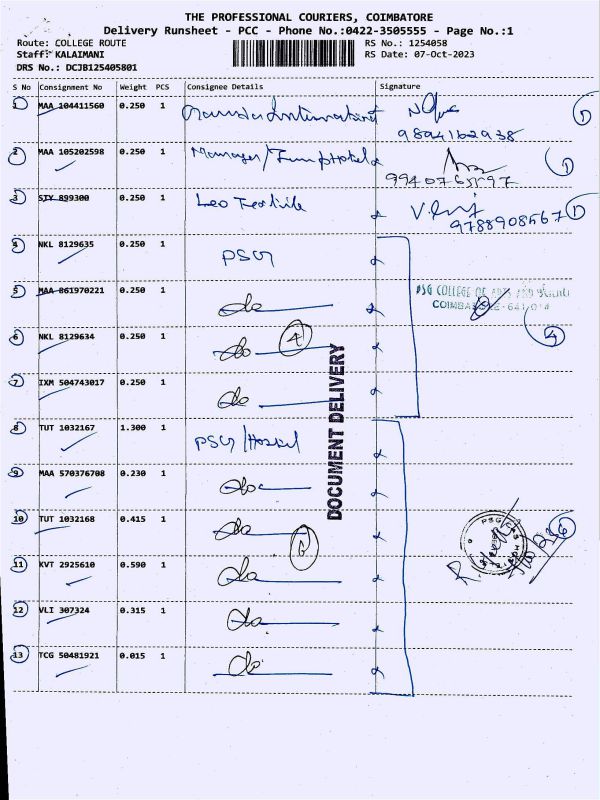 THE PROFESSIONAL COURIERS, COIMBATORE
Delivery Runsheet - PCC - Phone No.:0422-3505555 - Page No.:1
Route: COLLEGE ROUTE RS No.: 1254058
Staff: KALAIMANI RS Date: 07-Oct-2023
DRS No.: DCJB125405801
S No Consignment No Weight PCS Consignee Details Signature
1 MAA 104411560 0.250 1
9894162938
2 MAA 105202598 0.250 1 Manager/
9940765597
3 STY 899300 0.250 1 Leo Textile
9788908567
4 NKL 8129635 0.250 1 PSG
5 MAA 861970221 0.250 1 do PSG COLLEGE OF ARTS AND SCIENCE
COIMBATORE - 641 014
6 NKL 8129634 0.250 1 do 4 4
7 IXM 504743017 0.250 1 do
DOCUMENT DELIVERY
8 TUT 1032167 1.300 1 PSG/Hostel
9 MAA 570376708 0.230 1 do
10 TUT 1032168 0.415 1 do 6 6
11 KVT 2925610 0.590 1 do
12 VLI 307324 0.315 1 do
13 TCG 50481921 0.015 1 do